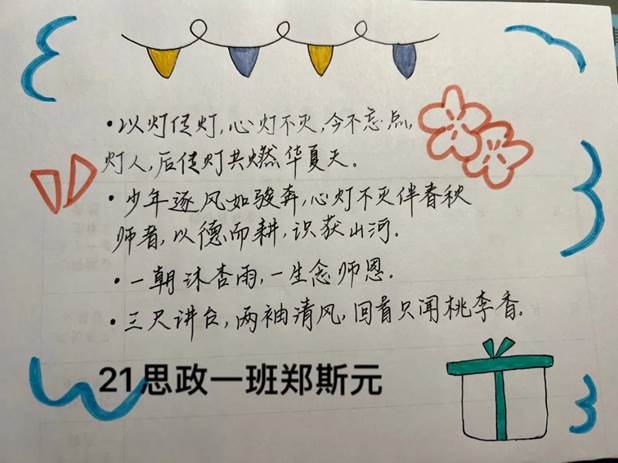 ·以灯传灯,心灯不灭,今不忘点,
灯人,后传灯共燃华夏天.
·少年逐风如骏奔,心灯不灭伴春秋
师者,以德而耕,识获山河.
·一朝沐杏雨,一生念师恩.
·三尺讲台,两袖清风,回首只闻桃李香.
21思政一班郑斯元